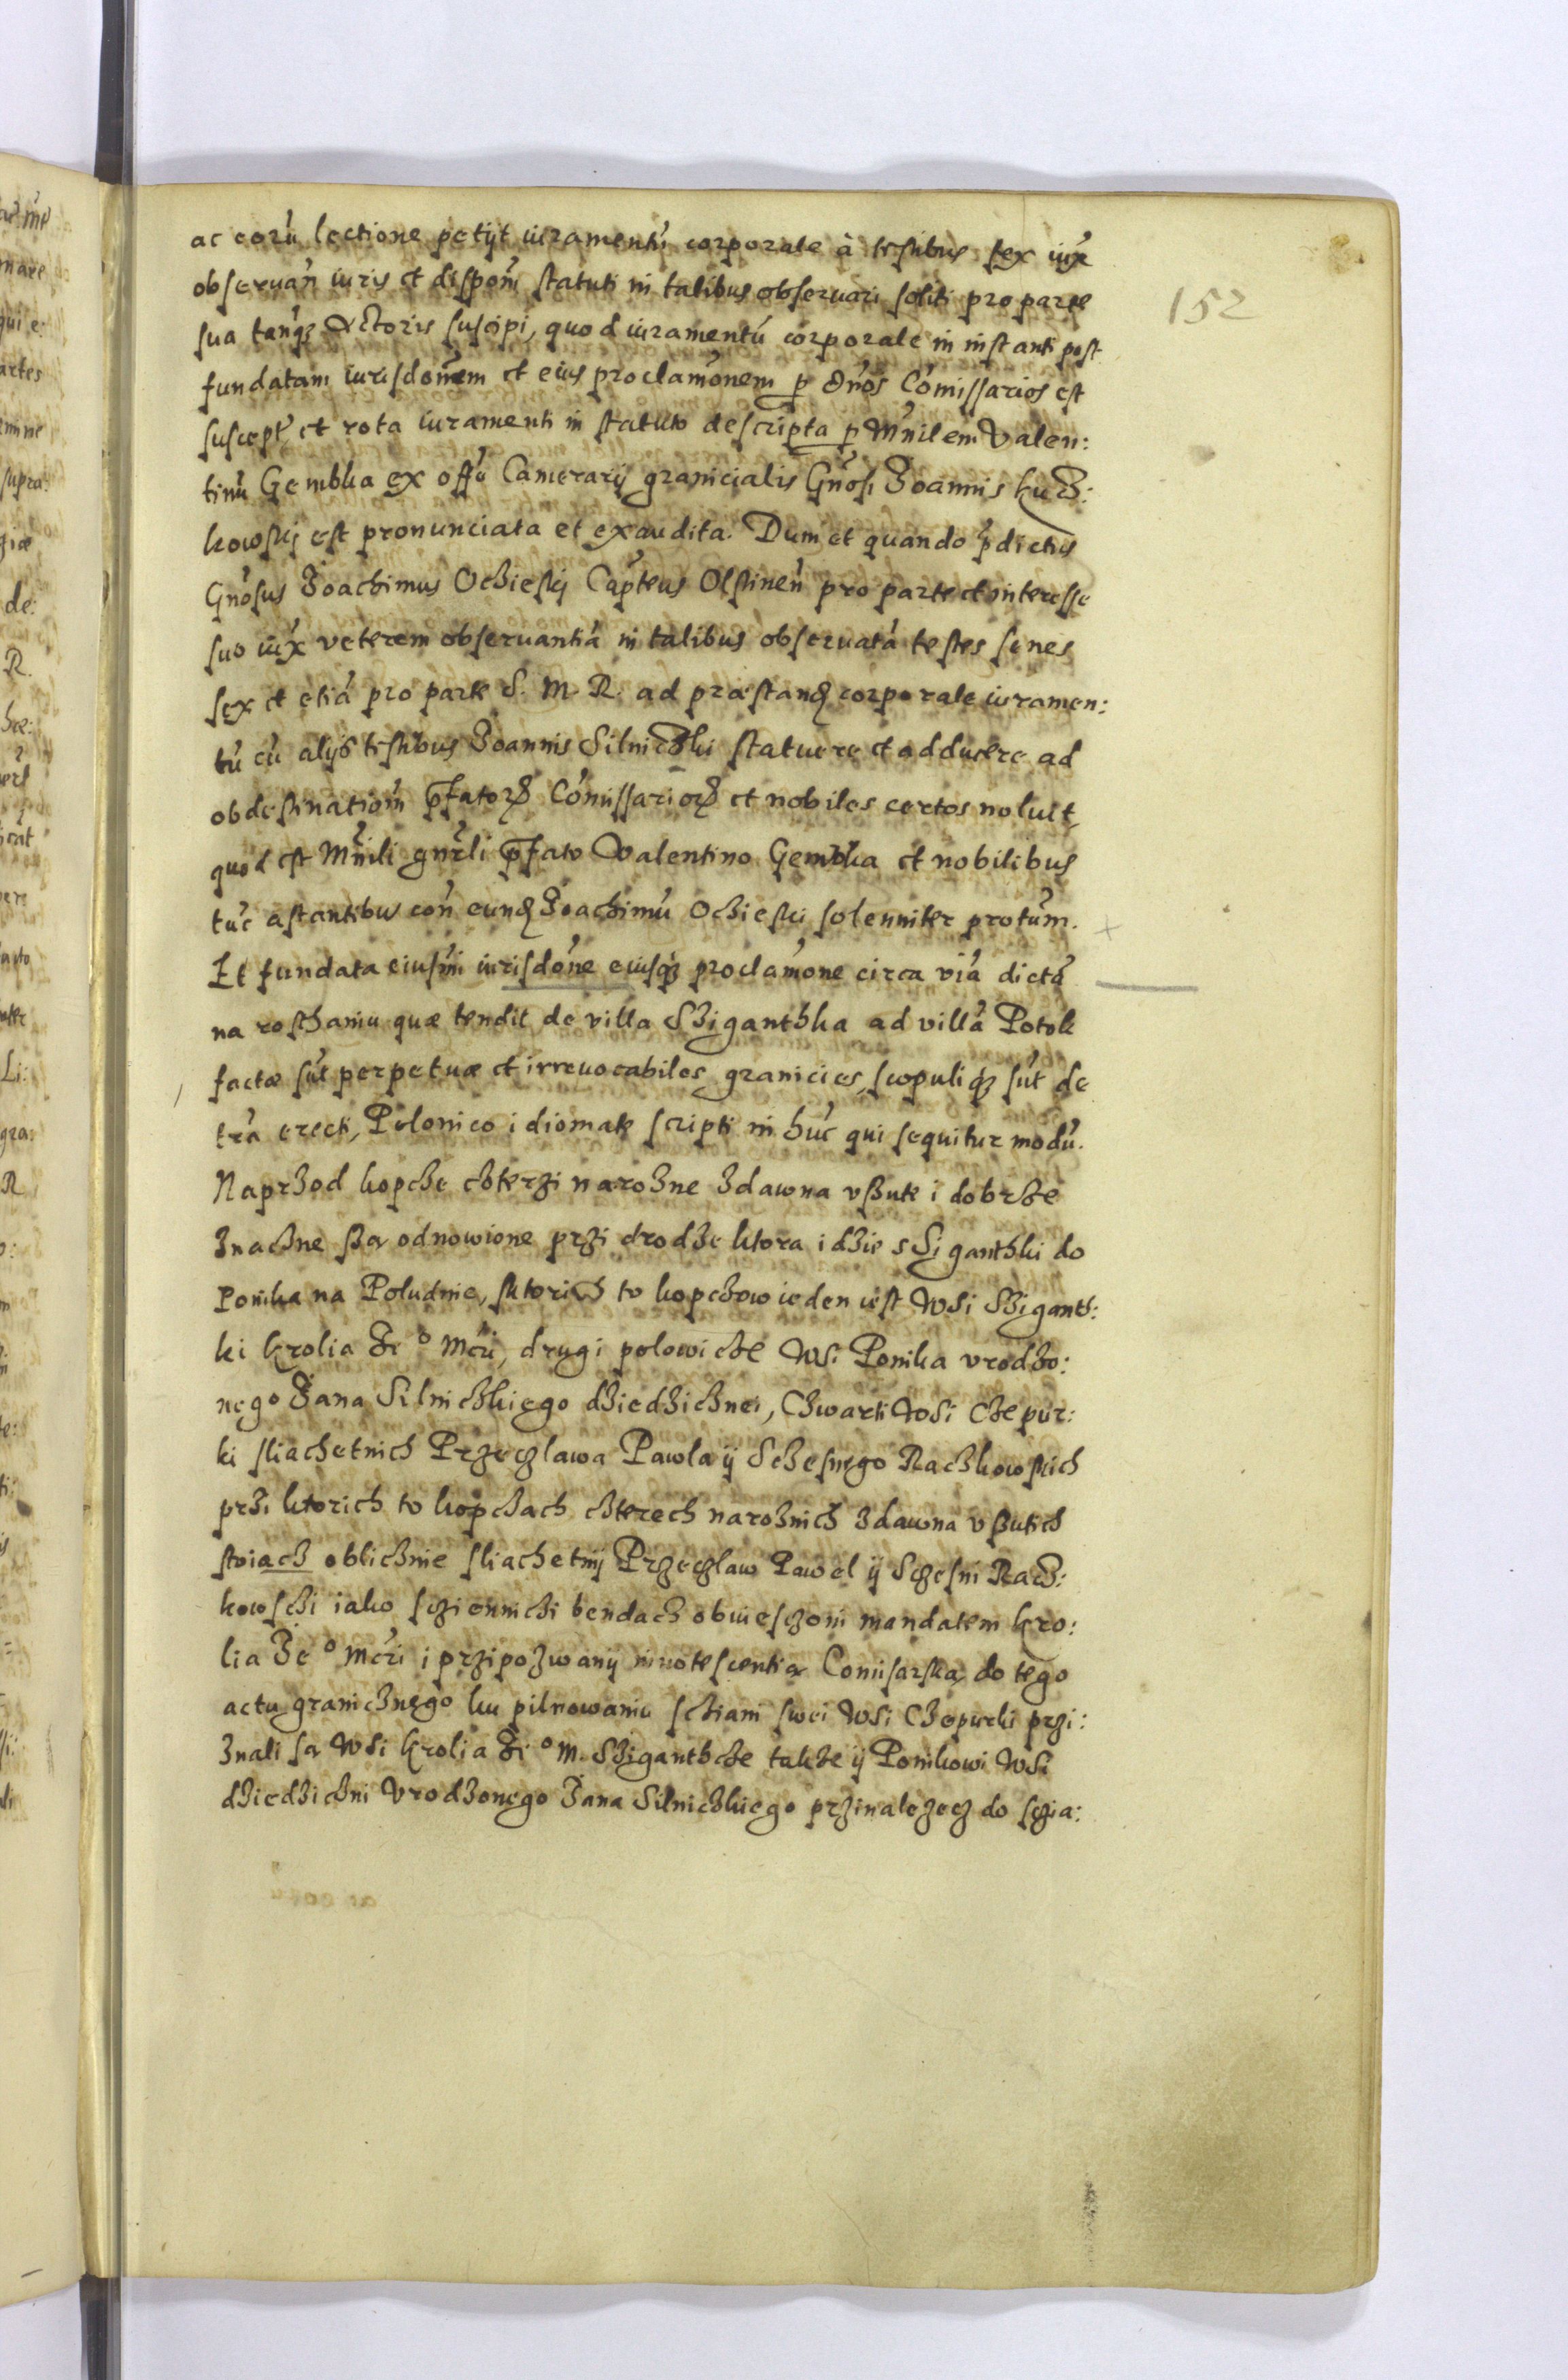 ac eorū lectione petijt iuramentū corporale à testibus sex iux̃
obseruan̄ iuris et dispon̄i statuti in talibus obseruari soliti pro parte
sua tanq̃ȝ Actoris suscipi, quod iuramentū corporale in instanti post
152
fundatam iurisdōnem et eius proclamōnem p dn̄os Cōmissarios est
suscept̃, et rota iuramenti in statuto descripta p Mn̄ilem Valen:
tinū Gembka ex offō Camerarij granicialis Gn̄osi Joannis Kucz:
kowskj est pronunciata et exaudita. Dum et quando p̄dictus
Gn̄osus Joachimus Oczieskj Cap̄teus Olstinen̄ pro parte et interesse
suo iux̃ veterem obseruantiā in talibus obseruatā testes senes
sex et etiā pro parte S. M. R. ad præstand corporale iuramen:
tū cū alijs testibus Joannis Silniczki statuere et adducere ad
obdestinatiōm p̄fatorȝ Cōmissariorȝ et nobiles certos noluit,
quod est Mn̄ili gn̄rli p̄fato Valentino Gembka et nobilibus
tūc astantibus con̄ eund Joachimū Oczieski solenniter protūm.
Et fundata eiusm̄i iurisdōne eiusqȝ proclamōne circa viā dictā
na rosthaniu quæ tendit de villa Sziganthka ad villā Potok
factæ sūt perpetuæ et irreuocabiles granicies, scopuliqȝ sūt de
trā erecti, Polonico idiomate scripti in hūc qui sequitur modū.
Naprzod kopcze czterzi narozne zdawna vsute i dobrze
znaczne są odnowione przi drodze ktora idzie s Siganthki do
Ponika na Poludnie, sktorich to kopczow ieden iest Wsi Szigant:
ki Krolia Je° Mc̄i, drugi polowicze Wsi Ponika vrodzo:
nego Jana Silniczkiego dziedzicznei, Czwarti Wsi Czepur:
ki sliachetnich Przeczlawa Pawla ij Sczesnego Raczkowskich
przi ktorich to kopczach czterech naroznich zdawna vsutich
stoiacz oblicznie sliachetnij Przeczlaw Pawel ij Sczesni Racz:
kowsczi iako sczienniczi bendacz obwiesczoni mandatem Kro:
lia Je° Mc̄i i przipozwanij innotescentią Comisarską do tego
actu granicznego ku pilnowaniu scziani swei Wsi Czepurki przi:
znali są Wsi Krolia Je° M. Sziganthcze takze ij Ponikowi Wsi
dziedziczni Vrodzonego Jana Silniczkiego przinalezecz do sczia: